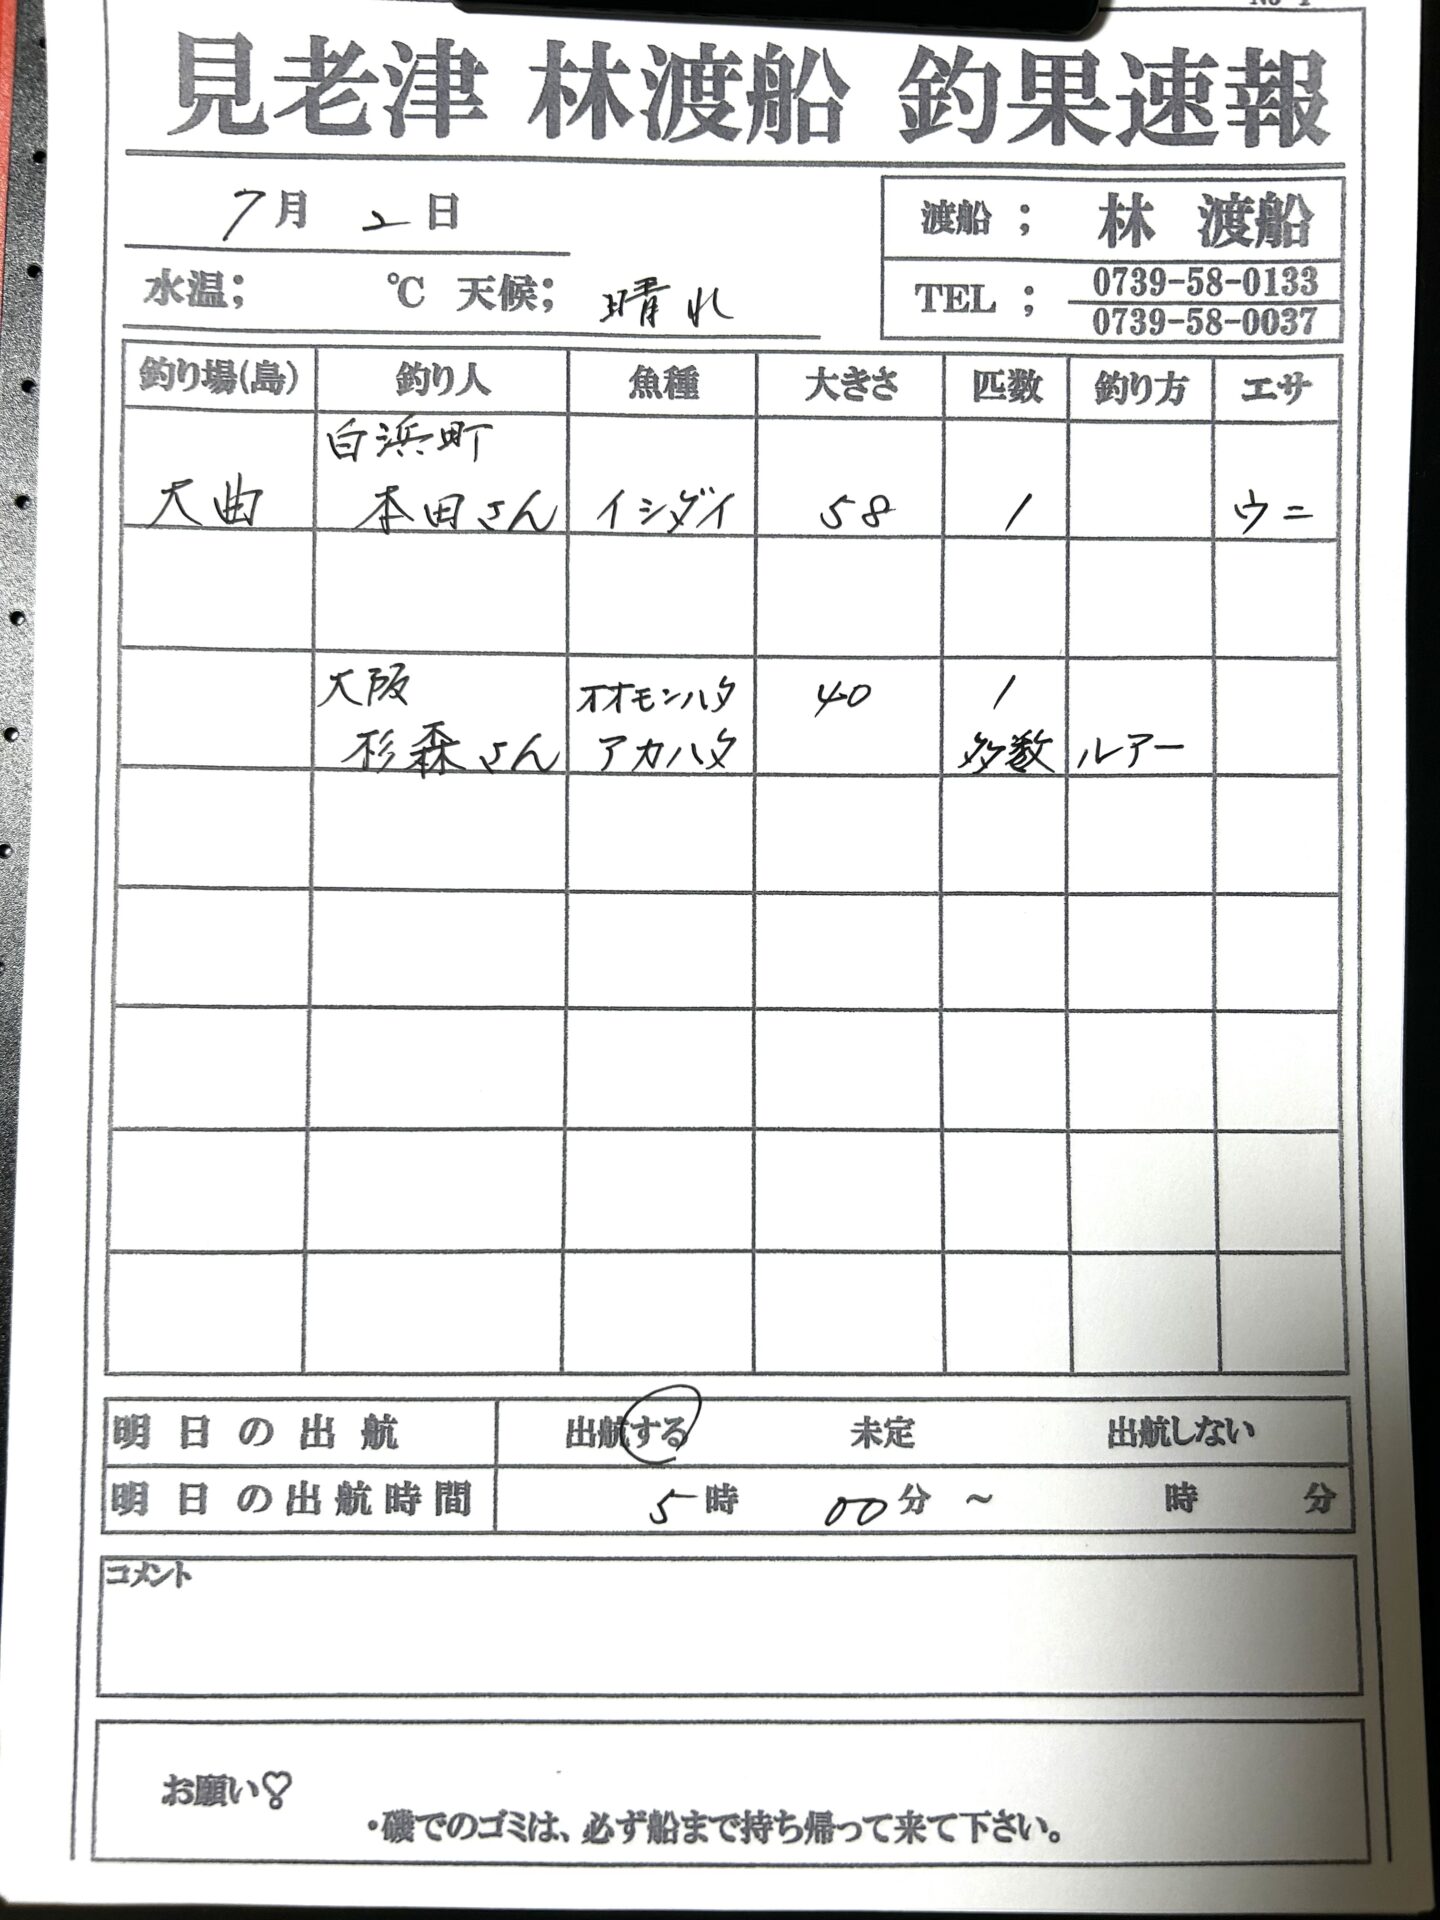 見老津 林渡船 釣果速報
7月 2日
渡船 ; 林 渡船
水温; ℃ 天候; 晴れ
TEL ; 0739-58-0133
0739-58-0037
釣り場(島) 釣り人 魚種 大きさ 匹数 釣り方 エサ
白浜町
大曲 本田さん イシダイ 58 1 ウニ
大阪 オオモンハタ 40 1
杉森さん アカハタ 多数 ルアー
明日の出航 出航する 未定 出航しない
明日の出航時間 5時 00分 ~ 時 分
コメント
お願い
・磯でのゴミは、必ず船まで持ち帰って来て下さい。